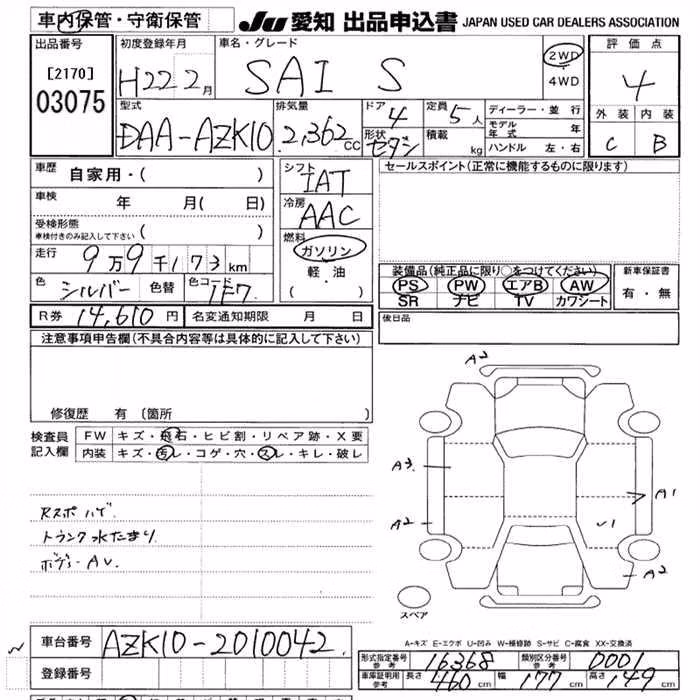 車内保管・守衛保管
JU 愛知 出品申込書 JAPAN USED CAR DEALERS ASSOCIATION
出品番号
[2170]
03075
初度登録年月
H22 2月
車名・グレード
SAI S
2WD
4WD
評価点
4
外装 内装
C B
型式
DAA-AZK10
排気量
2,362 CC
ドア 4
形状 セダン
定員 5 人
積載 kg
ディーラー・並行
モデル年式 年
ハンドル 左・右
車歴 自家用・( )
車検 年 月( 日)
受検形態
車検付きのみ記入して下さい ( )
走行 9万9千173km
色 シルバー 色替 色コード 1F7
シフト
IAT
冷房
AAC
燃料
ガソリン
軽油
( )
セールスポイント(正常に機能するものに限ります)
装備品(純正品に限り○をつけてください)
PS PW エアB AW
SR ナビ TV カワシート
新車保証書
有・無
R券 14,610 円 名変通知期限 月 日
後日品
注意事項申告欄(不具合内容等は具体的に記入して下さい)
修復歴 有 〔箇所 〕
検査員記入欄
FW キズ・飛石・ヒビ割・リペア跡・X要
内装 キズ・汚レ・コゲ・穴・スレ・キレ・破レ
Rスポ ハゲ
トランク水たまり
ボデー AU
A2
A3
A1
A2
レ1
A2
スペア
A-キズ E-エクボ U-凹み W-補修跡 S-サビ C-腐食 XX-交換済
車台番号 AZK10-2010042
登録番号
形式指定番号 参考 16368 類別区分番号 参考 0001
車庫証明用 参考 長さ 460 cm 幅 177 cm 高さ 149 cm